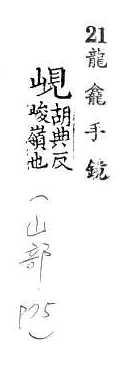 21龍龕手鏡
峴胡典反
峻嶺也
(山部 P75)